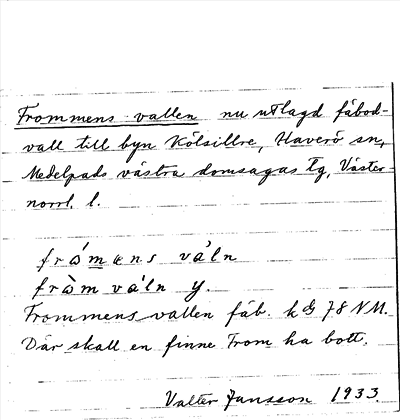 Frommens vallen nu utlagd fäbod-
vall till byn Kölsillre, Haverö sn,
Medelpads västra domsagas tg, Väster-
norrl. l.
frǻmens vȧ́ln
frò̊m vȧ́ln y.
Frommensvallen fäb. k bl 78 NM.
Där skall en finne From ha bott.
Valter Jansson 1933.